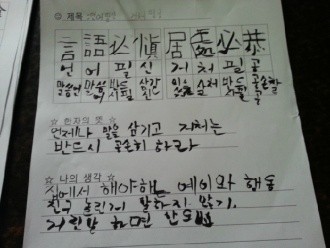 ◎ 제목
言語必慎居處必恭
언어필신거처필공
말씀언 말씀어 반드시필 삼갈신 있을거 살처 반드시필 공손할공
☆ 한자의 뜻 ☆
언제나 말을 삼기고 거처는
반드시 공손히 하라
☆ 나의 생각 ☆
집에서 해야할 예의와 행동
친구 놀린게 말하지 말기.
거친말 하면 안